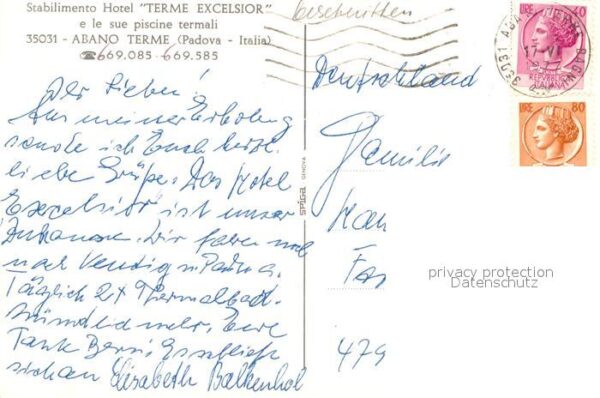 Stabilimento Hotel "TERME EXCELSIOR"
e le sue piscine termali
35031 - ABANO TERME (Padova - Italia)
☎669.085 - 669.585
beschritten
Ihr Lieben!
Aus meiner Erholung
sende ich Euch herzl.
liebe Grüße. Das Hotel
Excelsior ist unser
Zuhause. Wir fahren
nach Venedig u. Padua.
Täglich 2x Thermalbad.
Mündlich mehr. Eure
Tante
sich an Elisabeth Balkenhol
SPIGA GENOVA
LIRE 40
LIRE 80
35031 ABANO TERME
17 VI
REPUBBLICA ITALIANA
Deutschland
Familie
privacy protection
Datenschutz
479